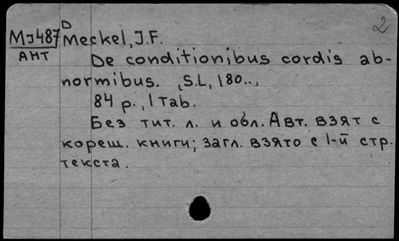 D 2
МJ487 Meckel, J.F.
АНТ
De conditionibus cordis ab-
normibus. S.L, 180..,
84 p., 1 Tab.
Без тит. л. и обл. Авт. взят с
кореш. книги; загл. взято с 1-й стр.
текста.